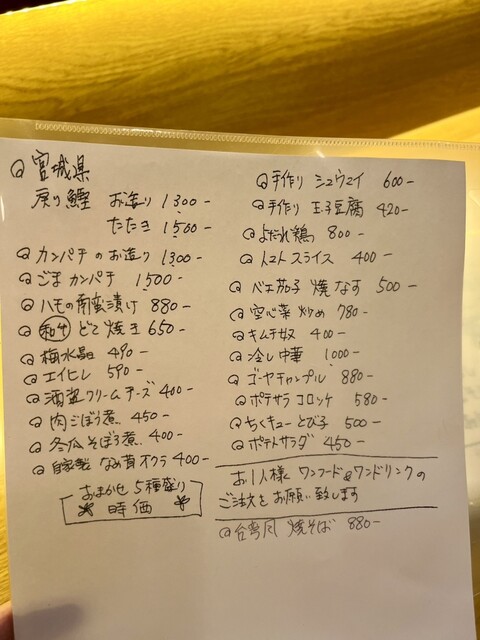 宮城県
戻り鰹 お造り 1300-
たたき 1500-
カンパチのお造り 1300-
ごまカンパチ 1500-
ハモの南蛮漬け 880-
和牛 どて焼き 650-
梅水晶 490-
エイヒレ 590-
酒盗クリームチーズ 400-
肉ごぼう煮 450-
冬瓜そぼろ煮 400-
自家製 なめ茸オクラ 400-
おまかせ 5種盛り
時価
手作り シュウマイ 600-
手作り 玉子豆腐 420-
よだれ鶏 800-
トマトスライス 400-
べェ茄子 焼なす 500-
空心菜 炒め 780-
キムチ奴 400-
冷し中華 1000-
ゴーヤチャンプル 880-
ポテサラコロッケ 580-
ちくキューとび子 500-
ポテトサラダ 450-
お1人様 ワンフード&ワンドリンクの
ご注文をお願い致します
台湾風 焼そば 880-